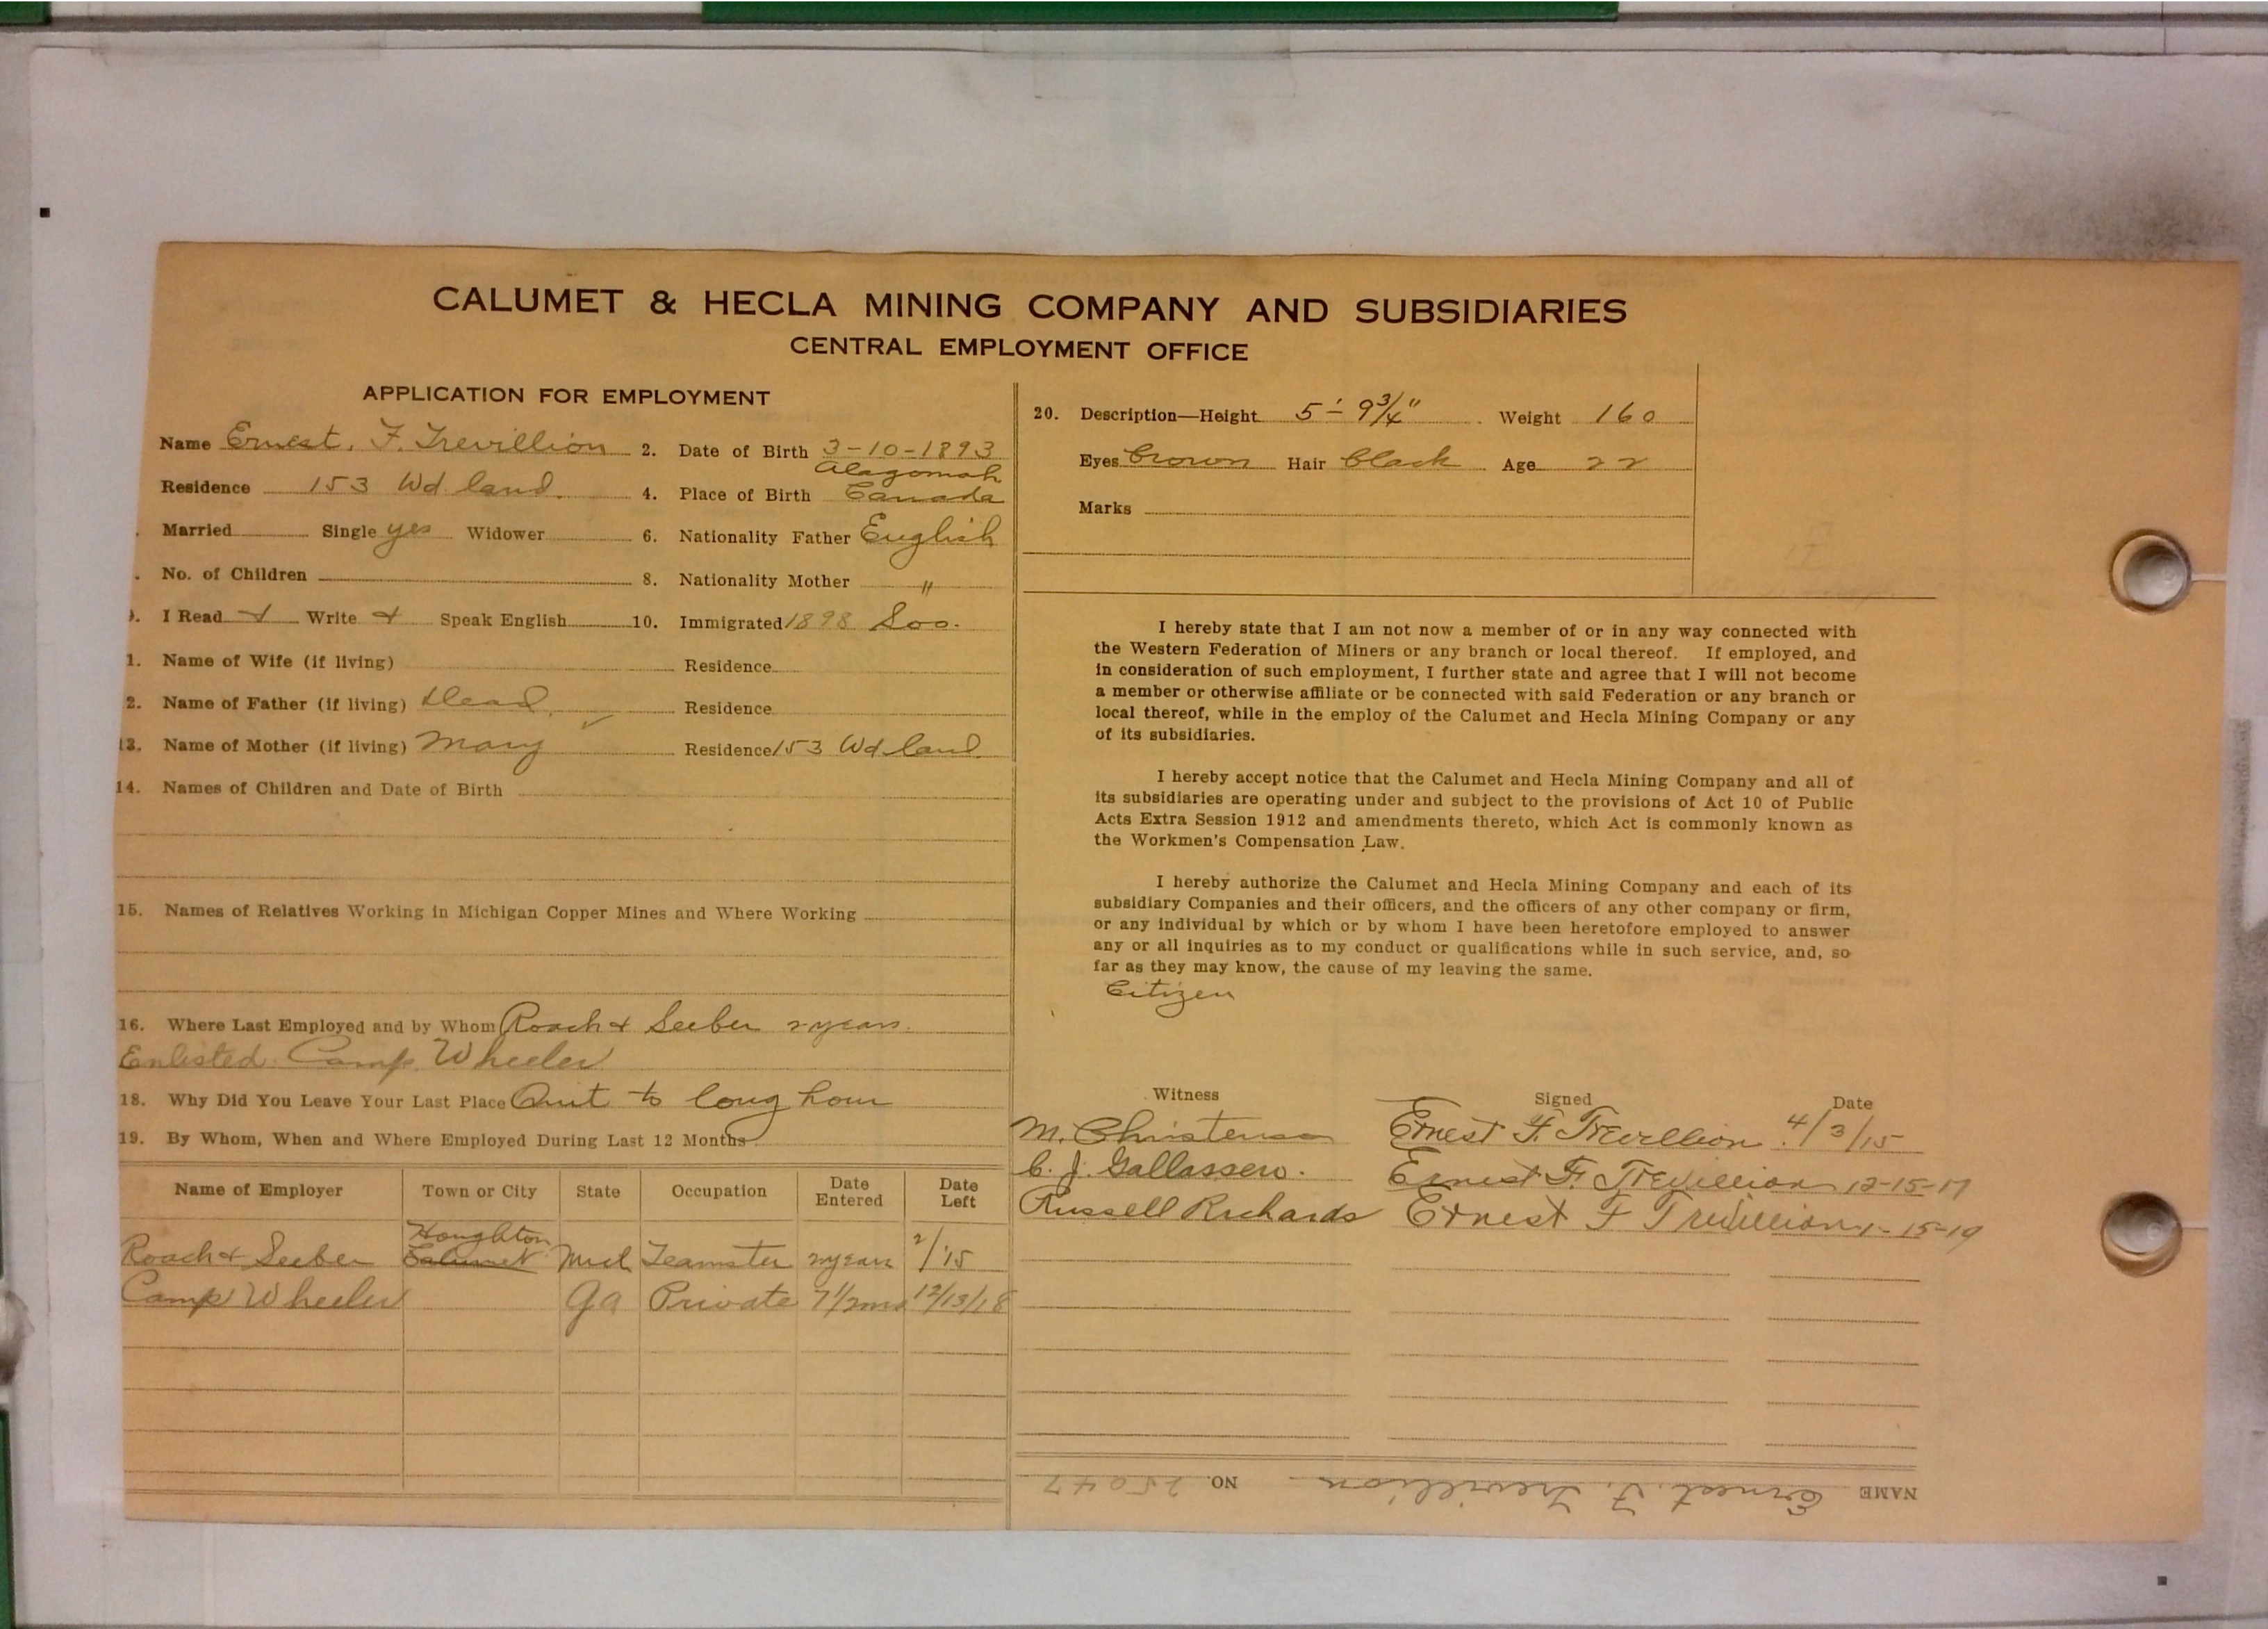 CALUMET & HECLA MINING COMPANY AND SUBSIDIARIES
CENTRAL EMPLOYMENT OFFICE
APPLICATION FOR EMPLOYMENT
Name Ernest. F. Trevillion 2. Date of Birth 3-10-1893
Residence 153 Wd land. 4. Place of Birth Alagomah Canada
Married Single yes Widower 6. Nationality Father English
No. of Children 8. Nationality Mother "
I Read Write Speak English 10. Immigrated 1898 Soo.
1. Name of Wife (if living) Residence
2. Name of Father (if living) Dead. Residence
13. Name of Mother (if living) Mary Residence 153 Wd land.
14. Names of Children and Date of Birth
15. Names of Relatives Working in Michigan Copper Mines and Where Working
16. Where Last Employed and by Whom Roach & Seeber 2 years.
Enlisted. Camp. Wheeler
18. Why Did You Leave Your Last Place Quit to long hour
19. By Whom, When and Where Employed During Last 12 Months
Name of Employer Town or City State Occupation Date Entered Date Left
Roach & Seeber Houghton Calumet Mich Teamster 2 years 2/'15
Camp Wheeler Ga Private 7 1/2 mos 12/13/18
20. Description—Height 5'- 9 3/4" Weight 160
Eyes brown Hair black Age 22
Marks
I hereby state that I am not now a member of or in any way connected with
the Western Federation of Miners or any branch or local thereof. If employed, and
in consideration of such employment, I further state and agree that I will not become
a member or otherwise affiliate or be connected with said Federation or any branch or
local thereof, while in the employ of the Calumet and Hecla Mining Company or any
of its subsidiaries.
I hereby accept notice that the Calumet and Hecla Mining Company and all of
its subsidiaries are operating under and subject to the provisions of Act 10 of Public
Acts Extra Session 1912 and amendments thereto, which Act is commonly known as
the Workmen's Compensation Law.
I hereby authorize the Calumet and Hecla Mining Company and each of its
subsidiary Companies and their officers, and the officers of any other company or firm,
or any individual by which or by whom I have been heretofore employed to answer
any or all inquiries as to my conduct or qualifications while in such service, and, so
far as they may know, the cause of my leaving the same.
Citizen
Witness Signed Date
M. Christensen Ernest F. Trevillion 4/3/15
C. J. Gallassew. Ernest F. Trevillion 12-15-17
Russell Richards Ernest F Trevillion 1-15-19
NAME Ernest. F. Trevillion NO. 25047